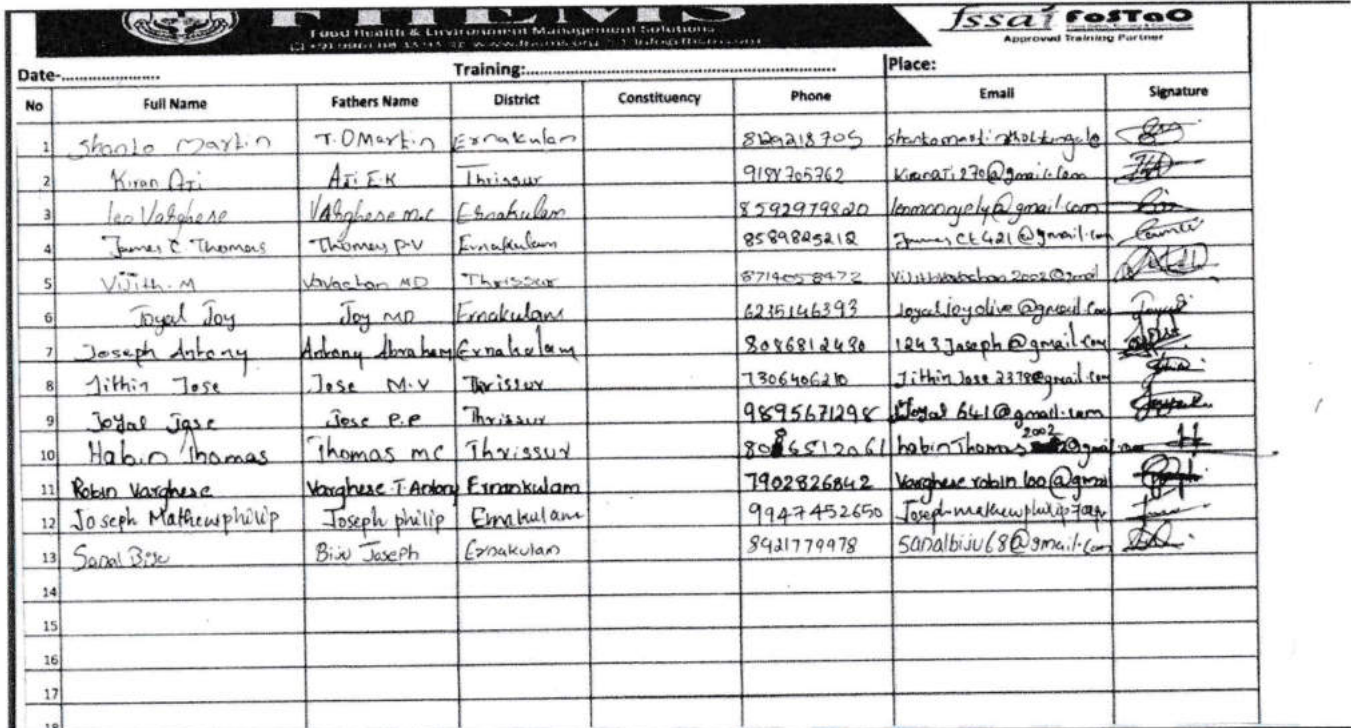 FHEMS
Food Health & Environment Management Solutions
fssai FoSTaC
Approved Training Partner
Date-...................... Training:.................................................................. Place:
No Full Name Fathers Name District Constituency Phone Email Signature
1 Shanto Martin T.O Martin Ernakulam 8129218705
2 Kiran Aji Aji E.K Thrissur 9188705762 Kiranaji270@gmail.com
3 leo Varghese Varghese M.C Ernakulam 8592979820
4 James C. Thomas Thomas P.V Ernakulam 8589825212
5 Vijith. M Vavachan MD Thrissur 8714058472
6 Joyal Joy Joy MD Ernakulam 6235146393 Joyaljoyolive@gmail.com
7 Joseph Antony Antony Abraham Ernakulam 8086812430 1243Joseph@gmail.com
8 Jithin Jose Jose M.V Thrissur 7306406210 JithinJose2378@gmail.com
9 Joyal Jose Jose P.P Thrissur 9895671298 Joyal641@gmail.com
10 Habin Thomas Thomas MC Thrissur 8086512061 habinThomas2002@gmail.com
11 Robin Varghese Varghese.T.Antony Ernankulam 7902826842 Vargheserobin100@gmai
12 Joseph Mathewphilip Joseph philip Ernakulam 9947452650
13 Sanal Biju Biju Joseph Ernakulam 8921779978 Sanalbiju68@gmail.com
14
15
16
17
18